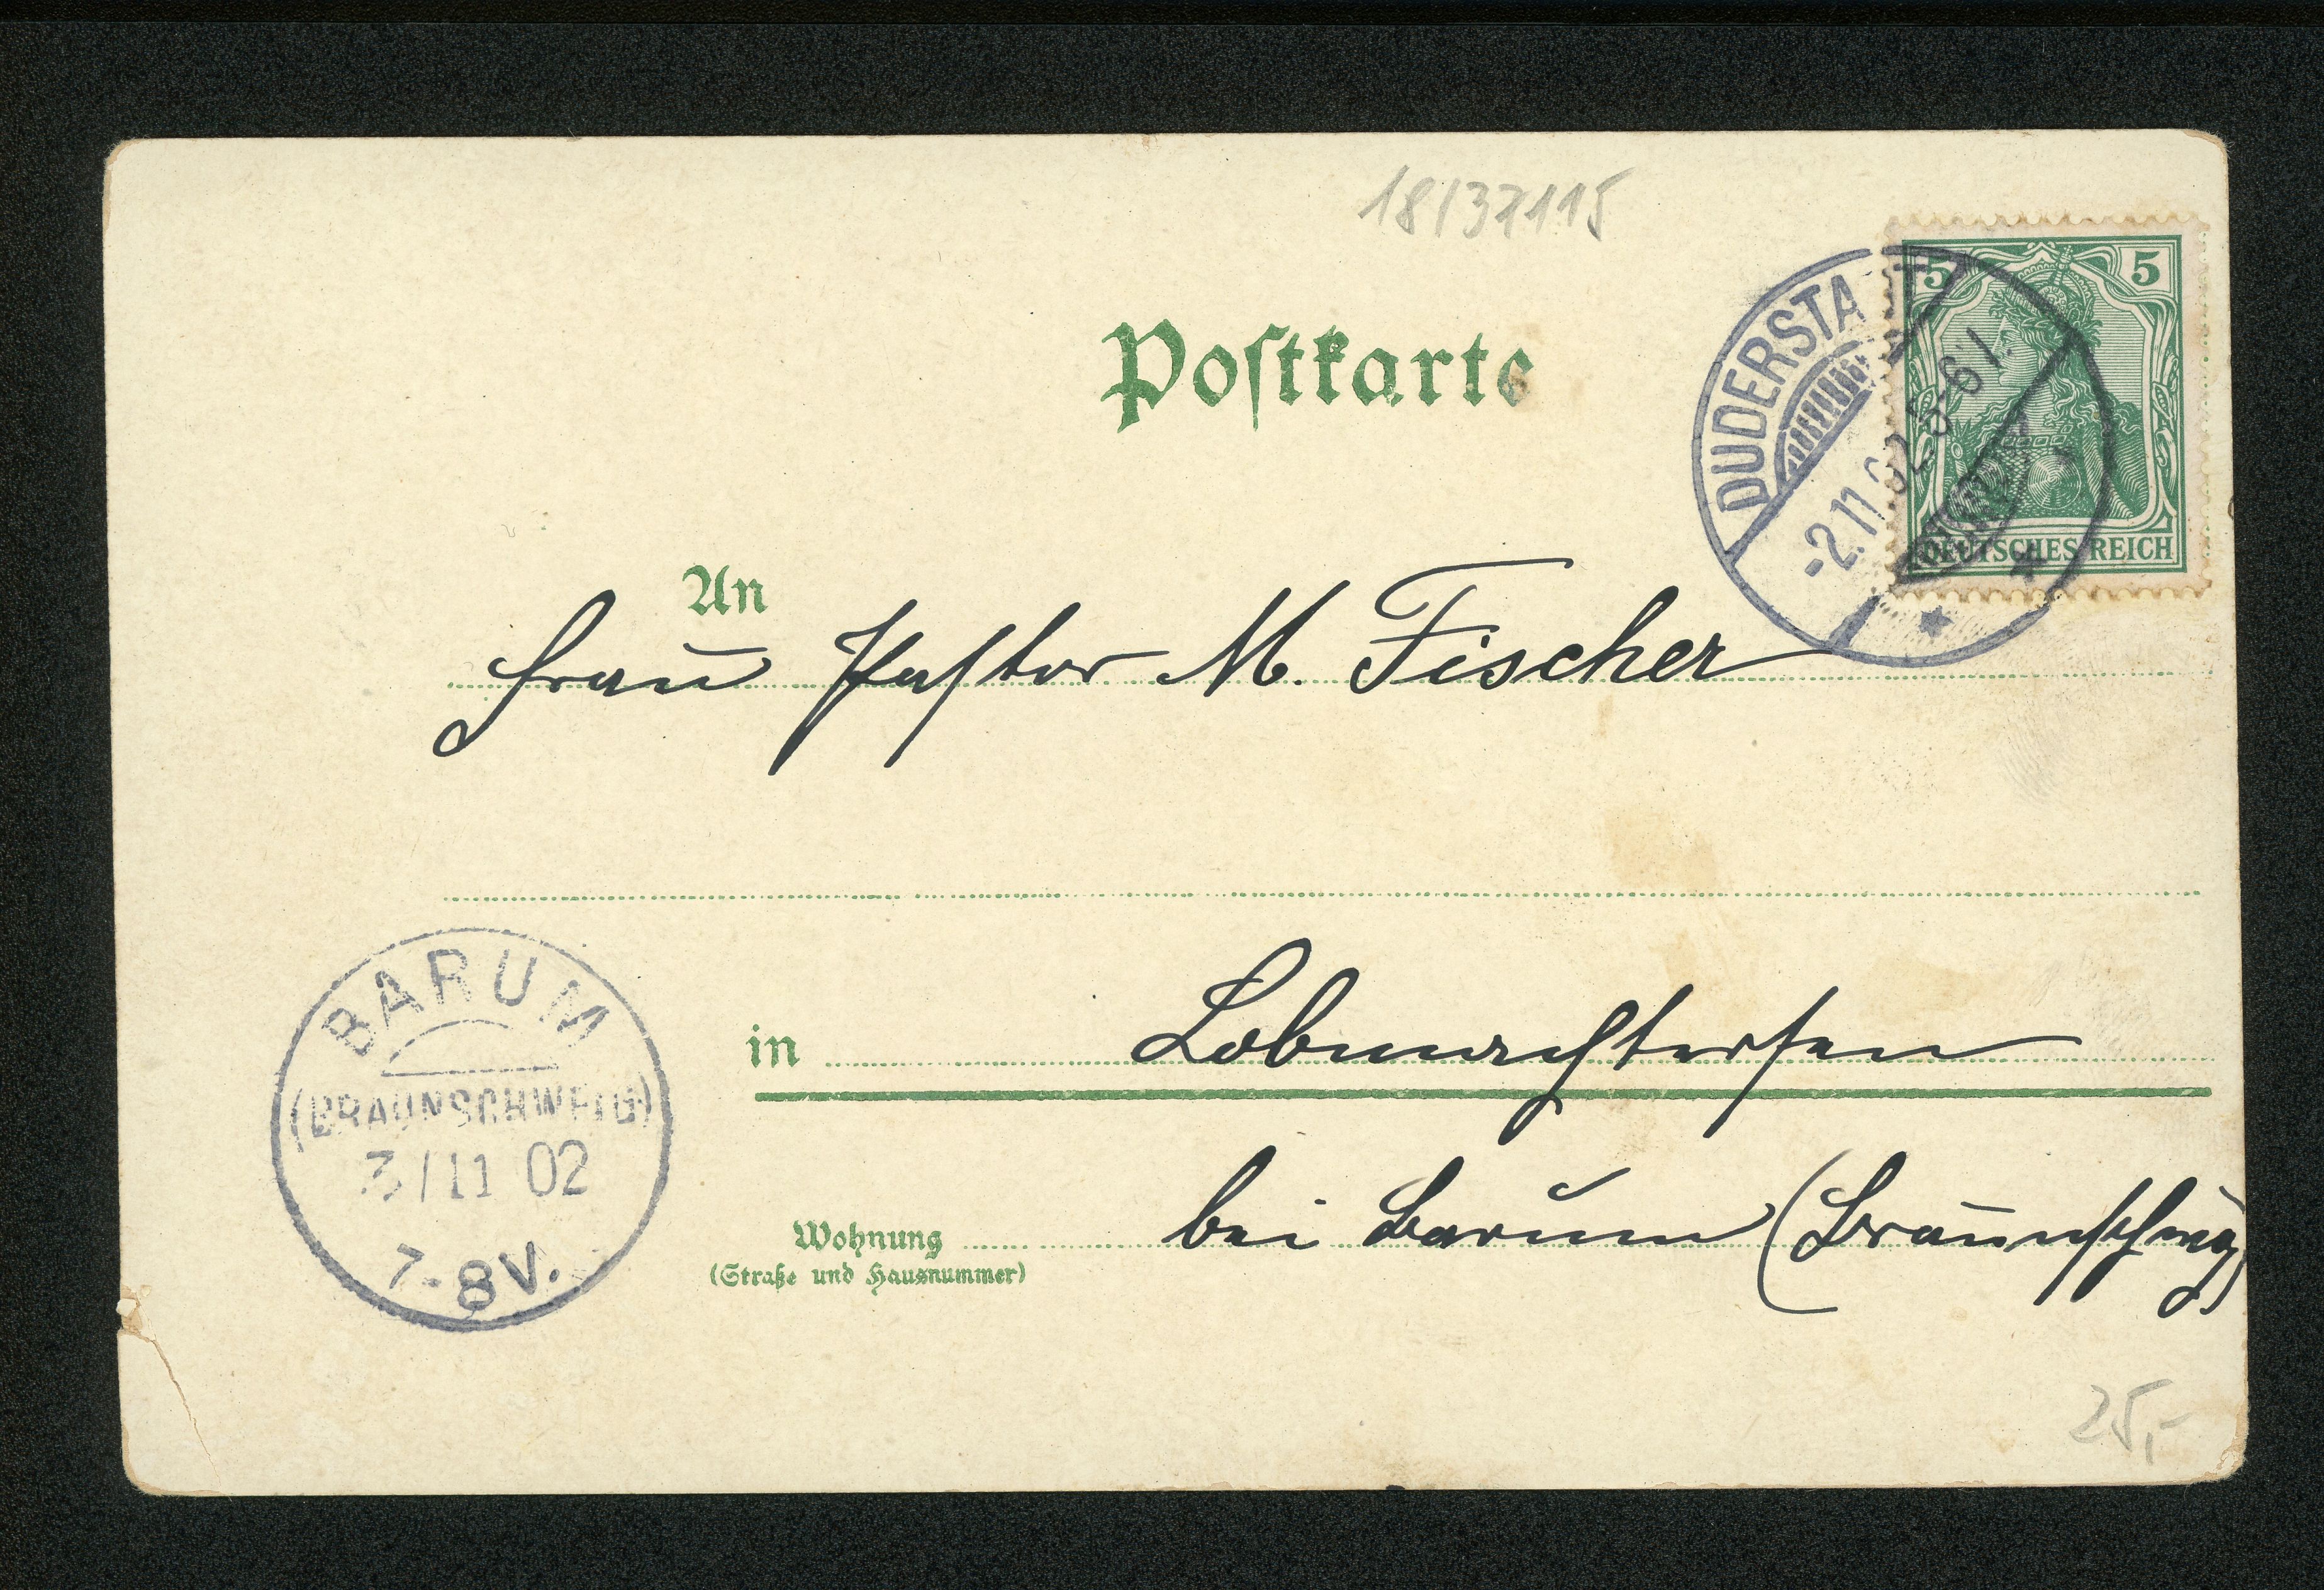 18/37115
Postkarte
5 5
DUDERSTA
-2.11.02.5-6
DEUTSCHES REICH
An
Frau Pastor M. Fischer
BARUM
(BRAUNSCHWEIG)
3/11 02
7-8V.
in Lobmachtersen
Wohnung bei Barum (Braunschweig)
(Straße und Hausnummer)
25,-